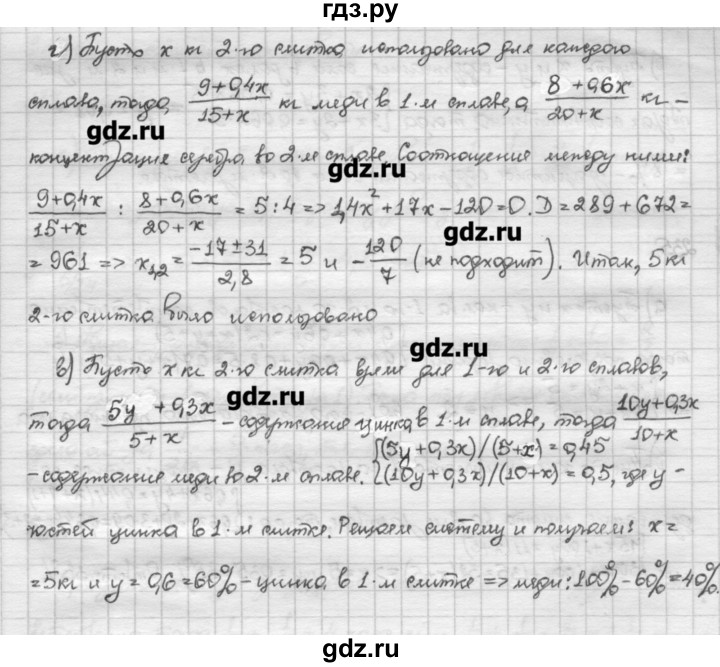 гдз.ру
г) Пусть x кг 2-го слитка использовано для каждого
сплава, тогда (9+0,4x)/(15+x) кг меди в 1-м сплаве, а (8+0,6x)/(20+x) кг -
gdz.ru
gdz.ru
концентрация серебра во 2-м сплаве. Соотношение между ними:
gdz.ru
(9+0,4x)/(15+x) : (8+0,6x)/(20+x) = 5:4 => 1,4x²+17x-120=0. D=289+672=
gdz.ru
= 961 => x₁,₂ = (-17±31)/2,8 = 5 и -120/7 (не подходит). Итак, 5кг
2-го слитка было использовано
gdz.ru
в) Пусть x кг 2-го слитка взяли для 1-го и 2-го сплавов,
gdz.ru
тогда (5y+0,3x)/(5+x) - содержание цинка в 1-м сплаве, тогда (10y+0,3x)/(10+x)
- содержание меди во 2-м сплаве. {(5y+0,3x)/(5+x)=0,45
{(10y+0,3x)/(10+x)=0,5, где y -
gdz.ru
частей цинка в 1-м слитке. Решаем систему и получаем: x=
=5кг и y=0,6=60% - цинка в 1-м слитке => меди: 100%-60%=40%.
gdz.ru